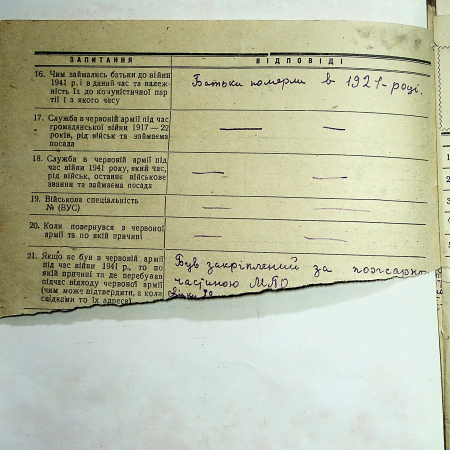 ЗАПИТАННЯ ВІДПОВІДІ
16. Чим займались батьки до війни
1941 р. і в даний час та належ-
ність їх до комуністичної пар-
тії і з якого часу
Батьки померли в 1921-році.
17. Служба в червоній армії під час
громадянської війни 1917 — 22
років, рід військ та займаєма
посада
— —
18. Служба в червоній армії під
час війни 1941 року, який час,
рід військ, останнє військове
звання та займаєма посада
— —
19. Військова спеціальність
№ (ВУС)
— —
20. Коли повернувся з червоної
армії та по якій причині
— —
21. Якщо не був в червоній армії
під час війни 1941 р., то по
якій причині та де перебував
підчас відходу червоної армії
(чим може підтвердити, в коли
свідками то їх адреса)
Був закріплений за пожарн
частиною